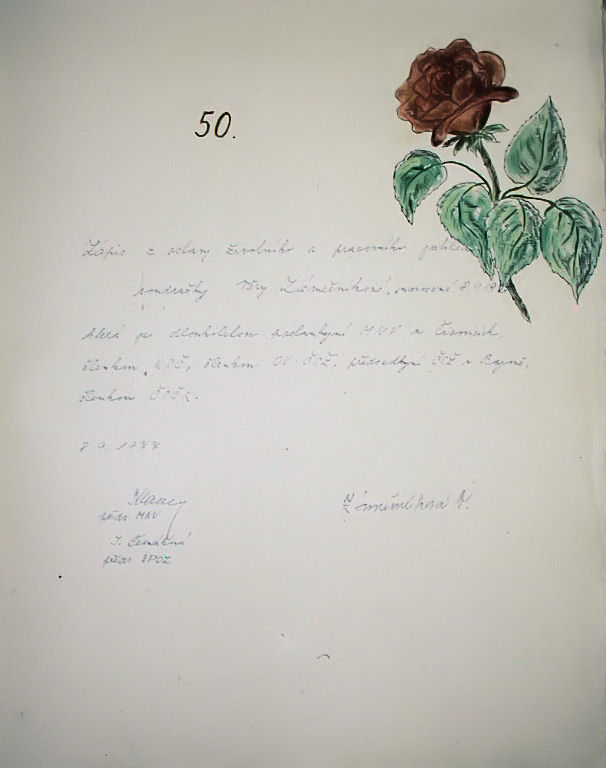 50.
Zápis z oslavy životního a pracovního jubilea
soudružky Věry Zámečníkové, narozené 8.9.19
která je dlouholetou poslankyní MNV v
členkou KSČ, členkou OV-ČSŽ, předsedkyní ČSŽ v
členkou ČSČK.
8 9. 1977
předs. MNV
předs. SPOZ
Zámečníková V.